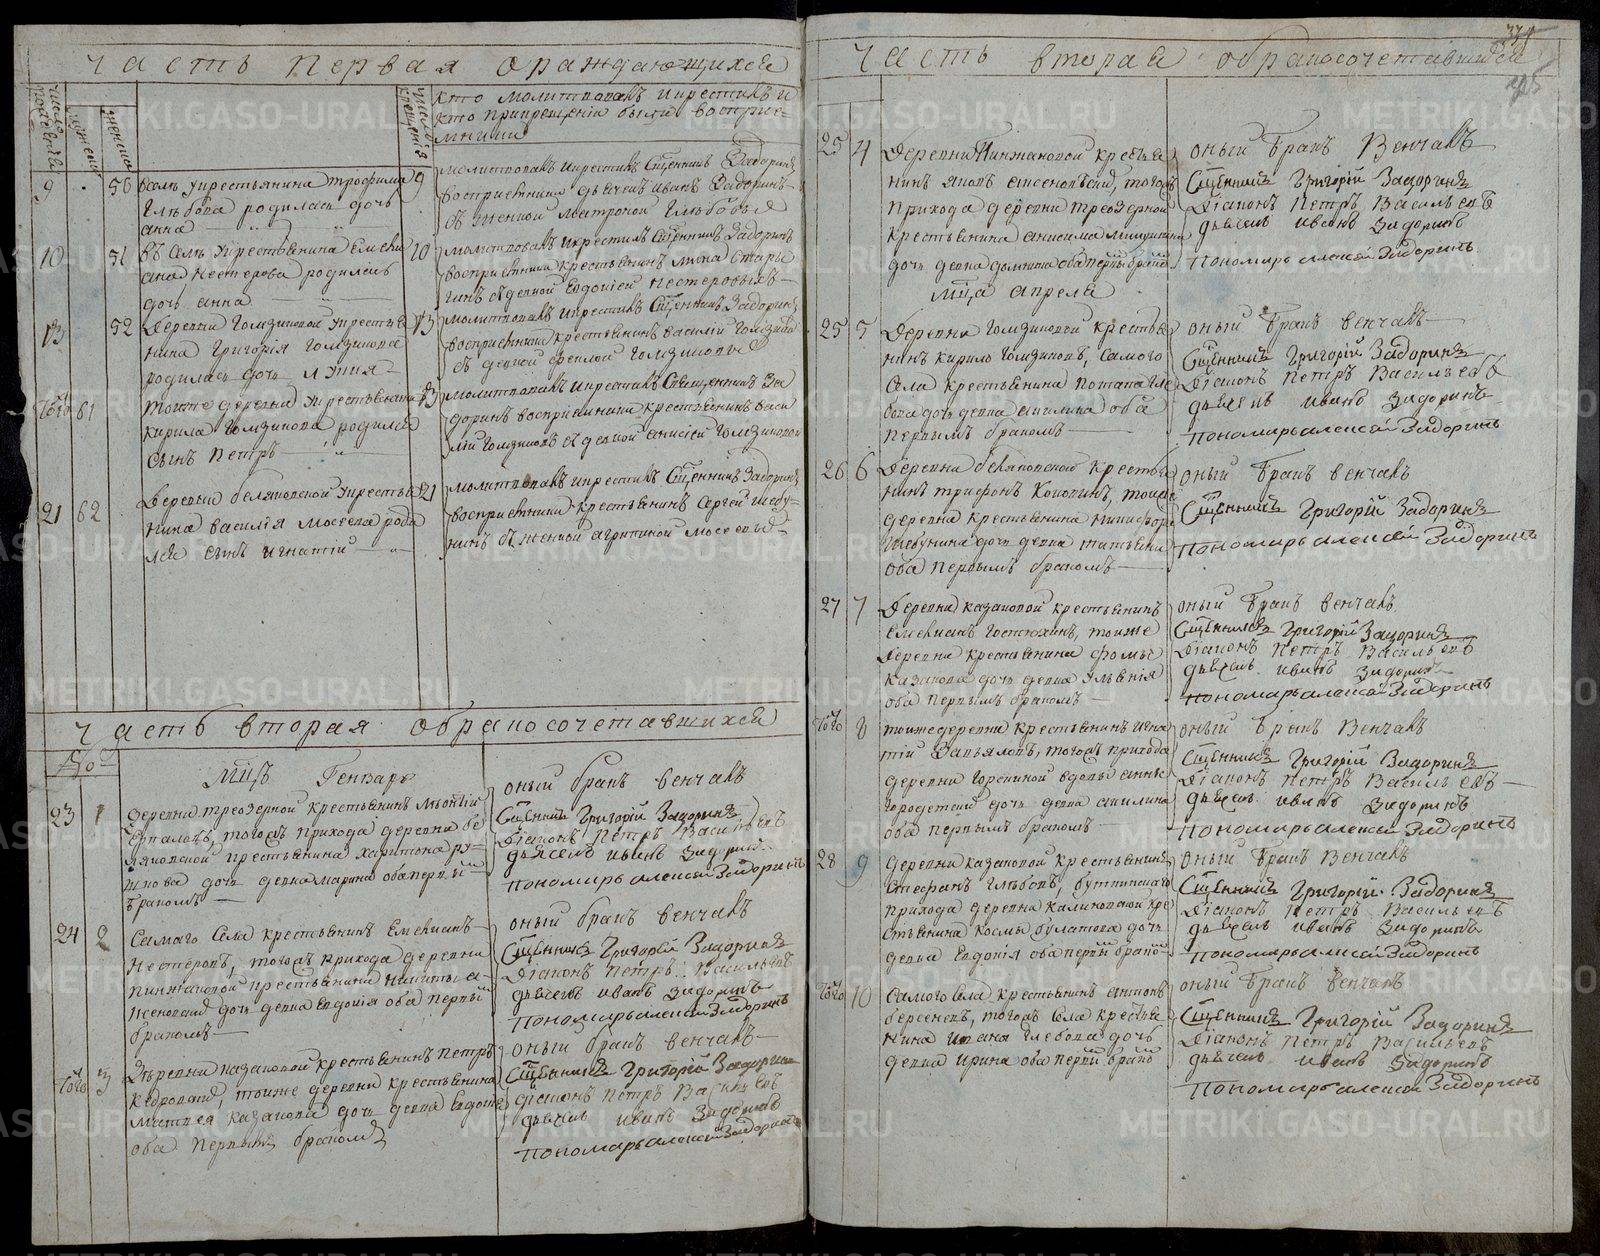 часть первая ораждающихся
число рождения
мужеска
женска
число крещения
кто молитвовалъ икрестилъ и
кто прикрещеніи были восприе-
мники
9 50 восель укрестьянина трофима
Глѣбова родилась дочь
анна
9 молитвовалъ икрестилъ Сщенникъ Задоринъ
восприемники дьячекъ иванъ Задоринъ
съ женкой матроной Глѣбовыя
10 51 въ селѣ укрестьянина Емельи
ана Нестерова родилась
дочь анна
10 молитвовалъ икрестилъ Сщенникъ Задоринъ
восприемники крестьянинъ
съ девкой Евдокіей Нестеровыхъ
13 52 Деревни Голязиновой укрестья
нина Григорія Голязинова
родилась дочь
13 молитвовалъ икрестилъ Сщенникъ Задоринъ
восприемники крестьянинъ василій
съ девкой феклой
Того 61 тойже деревни укрестьянина
кирила родился
сынъ Петръ
13 молитвовалъ икрестилъ Священникъ За
доринъ восприемники крестьянинъ васи
лій съ девкой анисіей
21 62 Деревни беляковской укрестья
нина василія Мосеева роди
лся сынъ игнатій
21 молитвовалъ икрестилъ Сщенникъ Задоринъ
восприемники крестьянинъ Сергей шебу-
нинъ съ женкой агрипиной мосеевыя
часть вторая обракосочетавшихся
Мцъ Генварь
23 1 Деревни треозерной крестьянинъ
тогожъ прихода деревни бе
ляковской крестьянина харитона ру-
дочь девка марина оба первы-
бракомъ
оный бракъ венчалъ
Сщенникъ Григорій Задоринъ
Діаконъ Петръ Васильевъ
дьячекъ иванъ Задоринъ
пономарь алексей Задоринъ
24 2 Самаго Села крестьянинъ Емельянъ
Нестеровъ, тогожъ прихода деревни
пинжаковой крестьянина никиты а-
дочь девка евдокія оба первы
бракомъ
оный бракъ венчалъ
Сщенникъ Григорій Задоринъ
Діаконъ Петръ Васильевъ
дьячекъ иванъ Задоринъ
пономарь алексей Задоринъ
Того 3 Деревни казаковой крестьянинъ Петръ
тойже деревни крестьянина
матвея казакова дочь девка Евдокія
оба первымъ бракомъ
оный бракъ венчалъ
Сщенникъ Григорій Задоринъ
діаконъ Петръ Васильевъ
дьячекъ иванъ Задоринъ
пономарь алексей Задоринъ
часть вторая обракосочетавшихся
25 4 Деревни Пинжаковой крестья
нинъ яковъ тогожъ
прихода деревни треозерной
крестьянина анисима
дочь девка оба первы бракъ
оный бракъ Венчалъ
Сщенникъ Григорій Задоринъ
Діаконъ Петръ Васильевъ
дьячекъ иванъ Задоринъ
пономарь алексей Задоринъ
Мца апреля
25 5 Деревни Голязиновой крестья
нинъ кирило Голязиновъ, самого
села крестьянина потапа Гле
бова дочь девка акилина оба
первымъ бракомъ
оный бракъ венчалъ
Сщенникъ Григорій Задоринъ
Діаконъ Петръ Васильевъ
дьячекъ иванъ Задоринъ
пономарь алексей Задоринъ
26 6 Деревни беляковской крестья
нинъ трифонъ Кокоринъ, тойже
деревни крестьянина никифора
шебунина дочь девка татьяна
оба первымъ бракомъ
оный бракъ венчалъ
Сщенникъ Григорій Задоринъ
пономарь алексей Задоринъ
27 7 Деревни казаковой крестьянинъ
Емельянъ тойже
деревни крестьянина фомы
казакова дочь девка Улянія
оба первымъ бракомъ
оный бракъ венчалъ
Сщенникъ Григорій Задоринъ
Діаконъ Петръ Васильевъ
дьячекъ иванъ Задоринъ
пономарь алексей Задоринъ
Того 8 тойже деревни крестьянинъ игна
тій Завьяловъ, тогожъ прихода
деревни вдовы анны
дочь девка акилина
оба первымъ бракомъ
оный бракъ Венчалъ
Сщенникъ Григорій Задоринъ
Діаконъ Петръ Васильевъ
дьячекъ иванъ Задоринъ
пономарь алексей Задоринъ
28 9 Деревни казаковой крестьянинъ
Стефанъ Глѣбовъ, буткинскаго
прихода деревни калиновской кре
стьянина козмы булатова дочь
девка Евдокія оба первы брако
оный бракъ Венчалъ
Сщенникъ Григорій Задоринъ
Діаконъ Петръ Васильевъ
дьячекъ иванъ Задоринъ
пономарь алексей Задоринъ
Того 10 Самого села крестьянинъ антонъ
берсеневъ, тогожъ села крестья
нина ивана Глебова дочь
девка ирина оба первы брако
оный бракъ венчалъ
Сщенникъ Григорій Задоринъ
Діаконъ Петръ Васильевъ
дьячекъ иванъ Задоринъ
пономарь алексей Задоринъ
METRIKI.GASO-URAL.RU